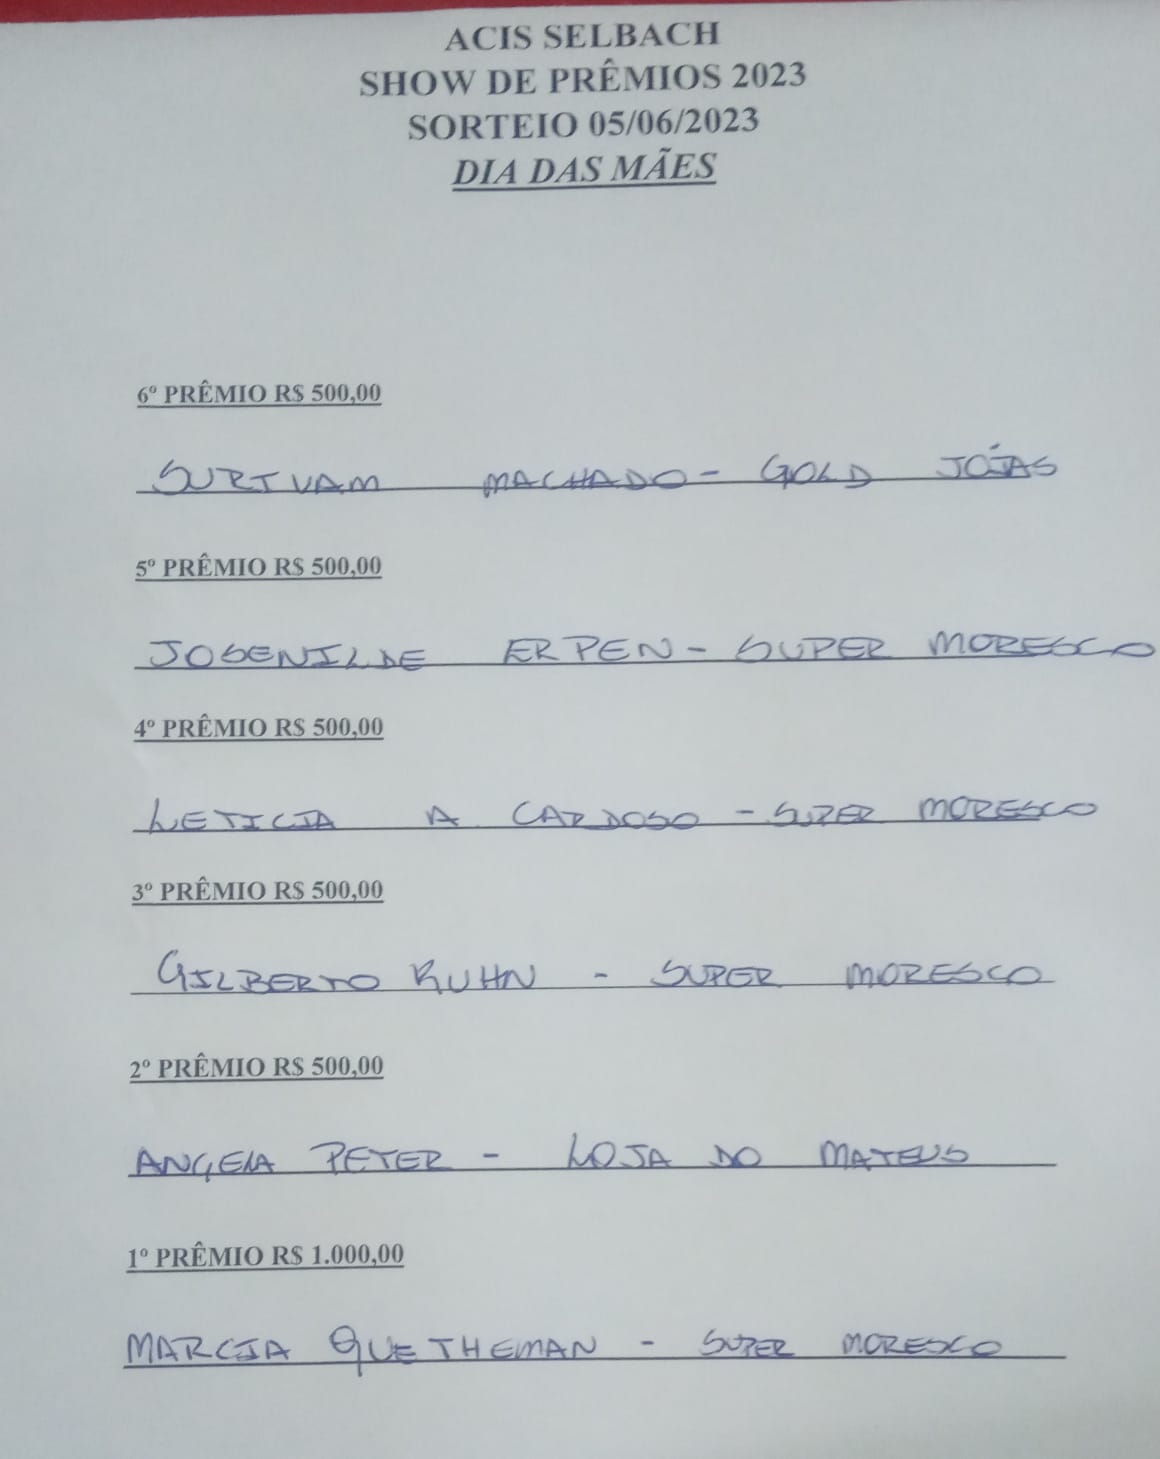 ACIS SELBACH
SHOW DE PRÊMIOS 2023
SORTEIO 05/06/2023
DIA DAS MÃES
6º PRÊMIO R$ 500,00
SURIVAM MACHADO - GOLD JÓIAS
5º PRÊMIO R$ 500,00
JOSENILDE ERPEN - SUPER MORESCO
4º PRÊMIO R$ 500,00
LETICIA A CARDOSO - SUPER MORESCO
3º PRÊMIO R$ 500,00
GILBERTO KUHN - SUPER MORESCO
2º PRÊMIO R$ 500,00
ANGELA PETER - LOJA DO MATEUS
1º PRÊMIO R$ 1.000,00
MARCIA QUETHEMAN - SUPER MORESCO